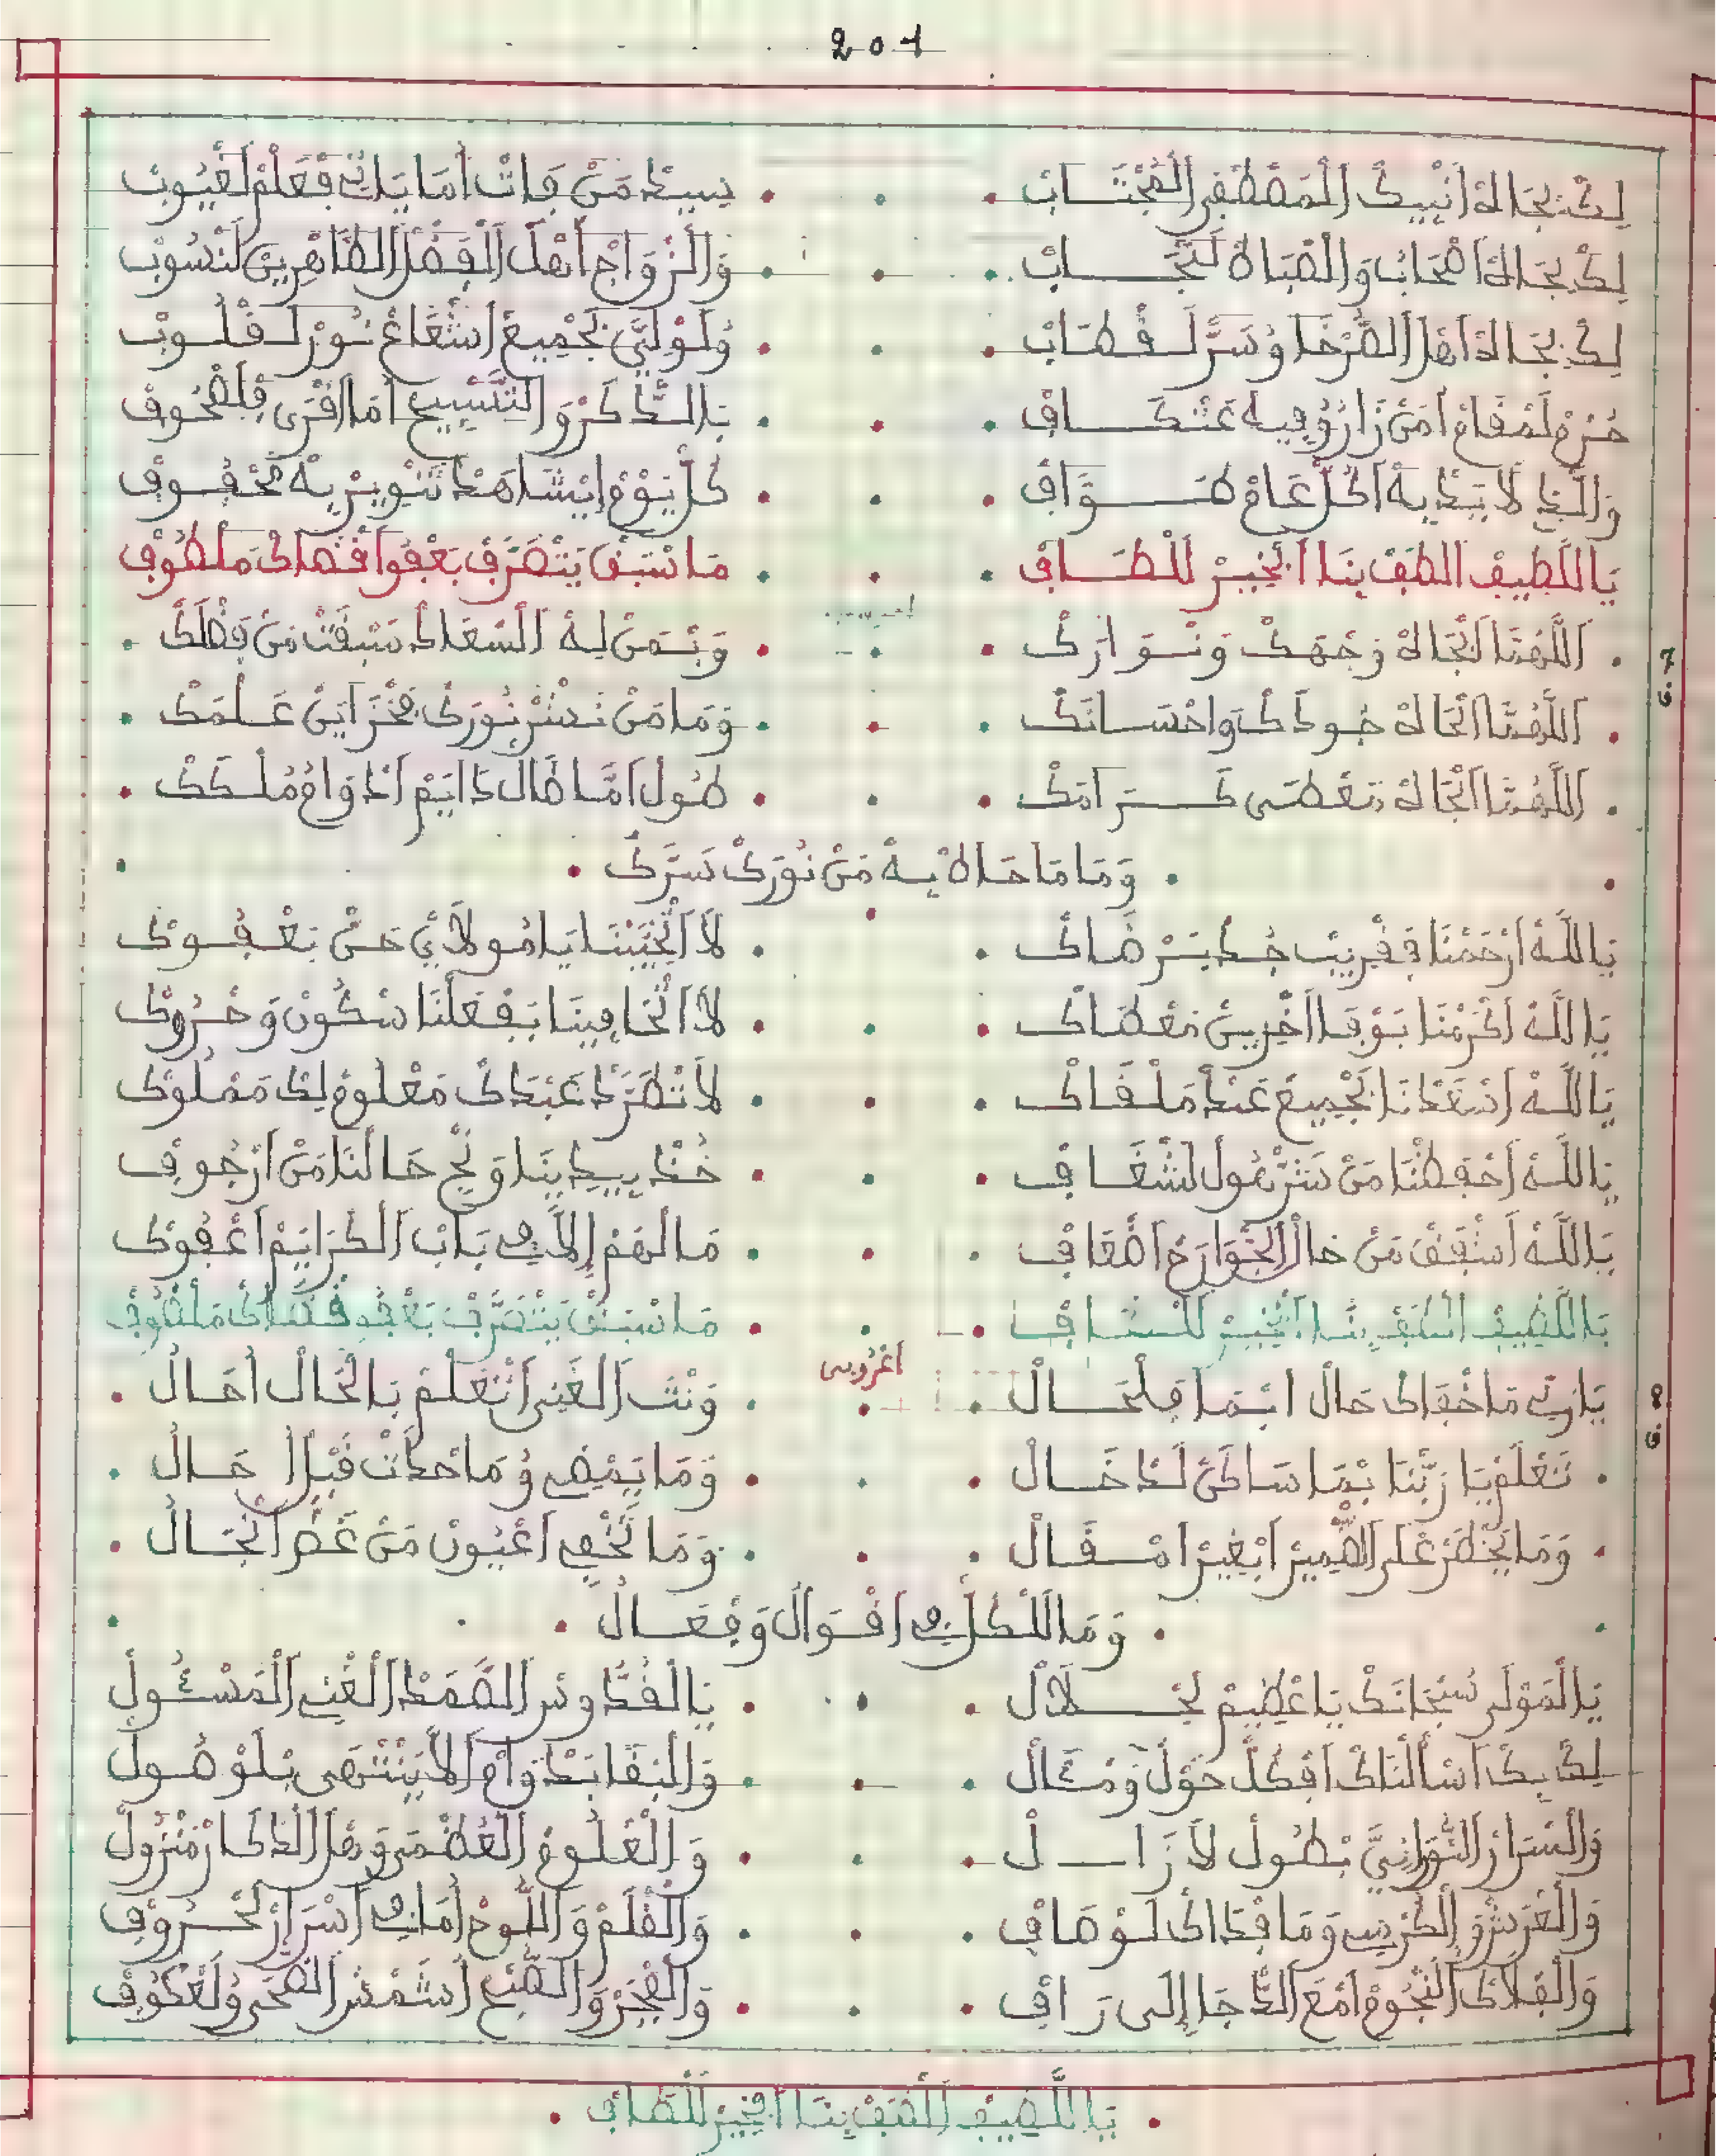 201
لِكْ بجَاهْ انْبِيكْ الْمَصْطَفَى الْمُجْتَابْ . سِيدْ مَنْ فَاتْ أمَا يَاتِي فْعَلْمْ لَغْيُوبْ
لِكْ بجَاهْ اصْحَابْ وَالْصَبَاهْ لَنْجَابْ . وَالْزْوَاجْ أهْلْ الْفَضْلْ الطَاهْرِينْ لَنْسُوبْ
لِكْ بجَاهْ اهْلْ الصَّرْخَا وُسَرّْ لَقْطَابْ . وُلَوْلِيَّ بَجْمِيعْ اشْعَاعْ نُورْ لَقْلُوبْ
حُرْمْ لَمْقَامْ أمَنْ زَارُو فِيهْ عَتْكَافْ . بَالذّْكَرْ وَالتَّسْبِيحْ أمَا اقْرَى فَلَصْحُوفْ
وَالّْذِي لاَيَذْ بِهْ اكُلّْ عَامْ طَوَّافْ . كُلّْ يَوْمْ إيْشَاهَدْ تَنْوِيرْ بِهْ مَحْفُوفْ
يَا اللَّطِيفْ الطَفْ بْنَا الْخْبِيرْ لَلْطَافْ . مَا سْبَقْ يَتْصَرَّفْ بَعْفُوا قْضَاكْ مَلْطُوفْ
. اللَّهُمَّا الْجَاهْ وَجْهَكْ وَنْوَارَكْ . وَبْمَنْ لِهْ السْعَادْ سَبْقَتْ مَنْ فَضْلَكْ .
ق.7
. اللَّهُمَّا الْجَاهْ جُودَكْ وَاحْسَانَكْ . وَمَا مَنْ نَشْرْ نُورَكْ فَخْزَايَنْ عَلْمَكْ .
. اللَّهُمَّا الْجَاهْ مَعْطَى كَرَامَكْ . طُولْ امَّا طَالْ دَايَمْ ادْوَامْ مُلْكَكْ .
. وَمَا مَا حَاطْ بِهْ مَنْ نُورَكْ سَرَّكْ .
يَا اللَّهْ ارْحَمْنَا فِ قْرِيبْ جُدْ بَرْضَاكْ . لاَ الْخَيَّبْنَا يَا مُولاَيْ حَقّْ بَعْفُوكْ
يَا اللَّهْ اكْرَمْنَا بَوْفَا اخْرِينْ مَعْطَاكْ . لاَ اتْحَافِينَا بَفْعَلْنَا سْكُونْ وَحْرُوكْ
يَا اللَّهْ اسْعَدْنَا بَجْمِيعْ عَنْدْ مَلْقَاكْ . لاَ تْطَرَّدْ عَبْدَكْ مَعْلُومْ لِكْ مَمْلُوكْ
يَا اللَّهْ احْفَظْنَا مَنْ شَرّْ هُولْ لَشْغَافْ . خُذْ بِيدِينَا وَنْجِي حَالْنَا مَنْ ارْجُوفْ
يَا اللَّهْ اشْفَقْ مَنْ حَالْ الْجْوَارَحْ اضْعَافْ . مَالْهُمْ إلاَّ فِي بَابْ الْكْرَايَمْ اعْفُوكْ
يَا اللَّطِيفْ الطَفْ بْنَا الْخْبِيرْ لَلْطَافْ . مَا سْبَقْ يَتْصَرَّفْ بَعْفُو قْضَاكْ مَلْطُوفْ
اعْرُوبِي
يَا رَبِّي مَا خْفَاكْ حَالْ ابْمَا فَلْحَالْ . وَنْتَ الْغَنِي اتْعَلْمْ بَالْحَالْ أحَالْ .
ق.8
. تَعْلَمْ يَا رَبَّنَا بْمَا سَاكَنْ لَدْخَالْ . وَمَا يَمْضِي وُمَا حْدَاتْ قَبْلْ أحَالْ .
. وَمَا يَخْطَرْ عَلَى الضَّمِيرْ ابْغِيرْ امْقَالْ . وَمَا تَخْفِي اعْيُونْ مَنْ غَضّْ انْجَالْ .
. وَمَا لَلْكُلّْ فِي اقْوَالْ وَفْعَالْ .
يَا الْمَوْلَى سُبْحَانَكْ يَا عْظِيمْ لَجْلاَلْ . يَا الْقُدُّوسْ الصَّمَدْ الْغْنِي الْمَسْئُولْ
لِكْ بِكْ اسْأَلْنَاكْ افْكُلّْ حَوْلْ وَمْئَالْ . وَالْبْقَا بَدْوَامْ الاَّ يَنْتَهَى بْلَوْصُولْ
وَالْسْرَارْ النُّورَانِيَّ بْطُولْ لاَزَالْ . وَالْعْلُومْ الْعُظْمَى وَهْلْ الذْكَارْ مَنْزُولْ
وَالْعَرْشْ وَالْكُرْسِي وَمَا فْدَاكْ لَوْصَافْ . وَالْقْلَمْ وَاللُّوحْ أُمَا فِي اسْرَارْ لَحْرُوفْ
وَالْفْلاَكْ النْجُومْ امْعَ الدّْجَا إلَى رَافْ . وَالْفْجَرْ وَالْصّْبَحْ اشَمْسْ الضْحَى وُلَعْكُوفْ
. يَا اللَّطِيفْ الْطَفْ بِنَا الْخْبِيرْ لَلْطَافْ .